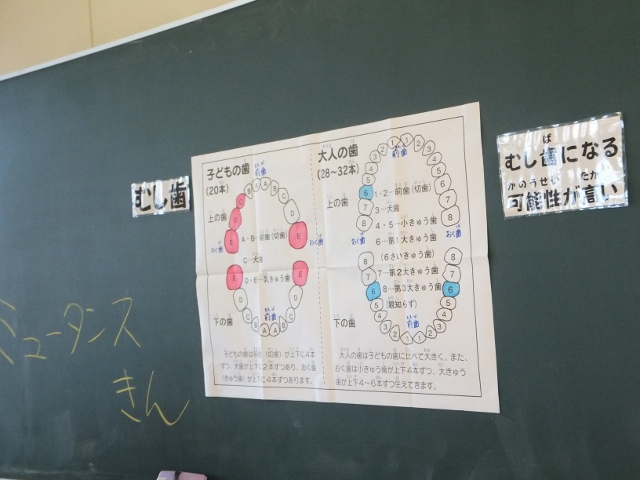 むし歯
子どもの歯
(20本)
前歯
上の歯
A・B…前歯(切歯)
おく歯
おく歯
C…犬歯
D・E…乳きゅう歯
前歯
下の歯
子どもの歯は前歯(切歯)が上下に4本
ずつ、犬歯が上下に2本ずつあり、おく歯
(きゅう歯)が上下に4本ずつあります。
大人の歯
(28~32本)
前歯
上の歯
1・2…前歯(切歯)
3…犬歯
4・5…小きゅう歯
おく歯
おく歯
6…第1大きゅう歯
(6さいきゅう歯)
7…第2大きゅう歯
8…第3大きゅう歯
(親知らず)
前歯
下の歯
大人の歯は子どもの歯に比べて大きく、また、
おく歯は小きゅう歯が上下4本ずつ、大きゅう
歯が上下4~6本ずつ生えてきます。
ば
むし歯になる
かのうせい たか
可能性が高い
ミュータンス
きん